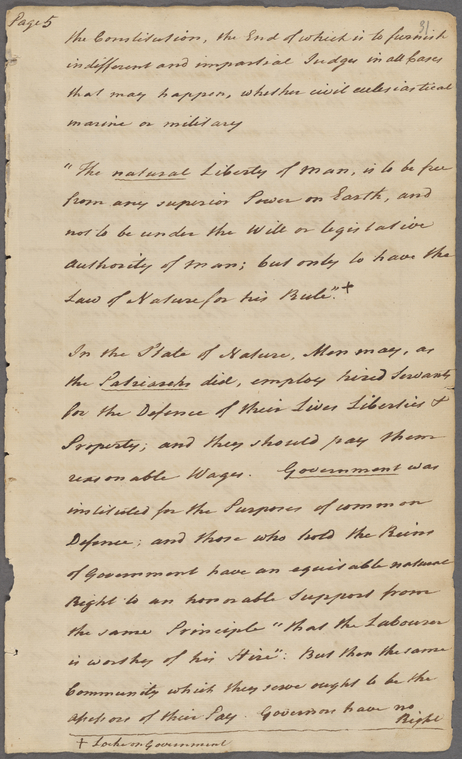 Page 5
81
the Constitution, the End of which is to furnish
indifferent and impartial Judges in all Cases
that may happen, whether civil ecclesiastical
marine or military
"The natural Liberty of Man, is to be free
from any superior Power on Earth, and
not to be under the Will or legislative
Authority of Man; but only to have the
Law of Nature for his Rule".+
In the State of Nature, Men may, as
the Patriarchs did, employ hired Servants
for the Defence of their Lives Liberties &
Property; and they should pay them
reasonable Wages. Government was
instituted for the Purposes of common
Defence; and those who hold the Reins
of Government have an equitable natural
Right to an honorable Support from
the same Principle "that the Labourer
is worthy of his Hire": But then the same
Community which they serve ought to be the
assessors of their Pay. Governors have no
Right
+ Locke on Government